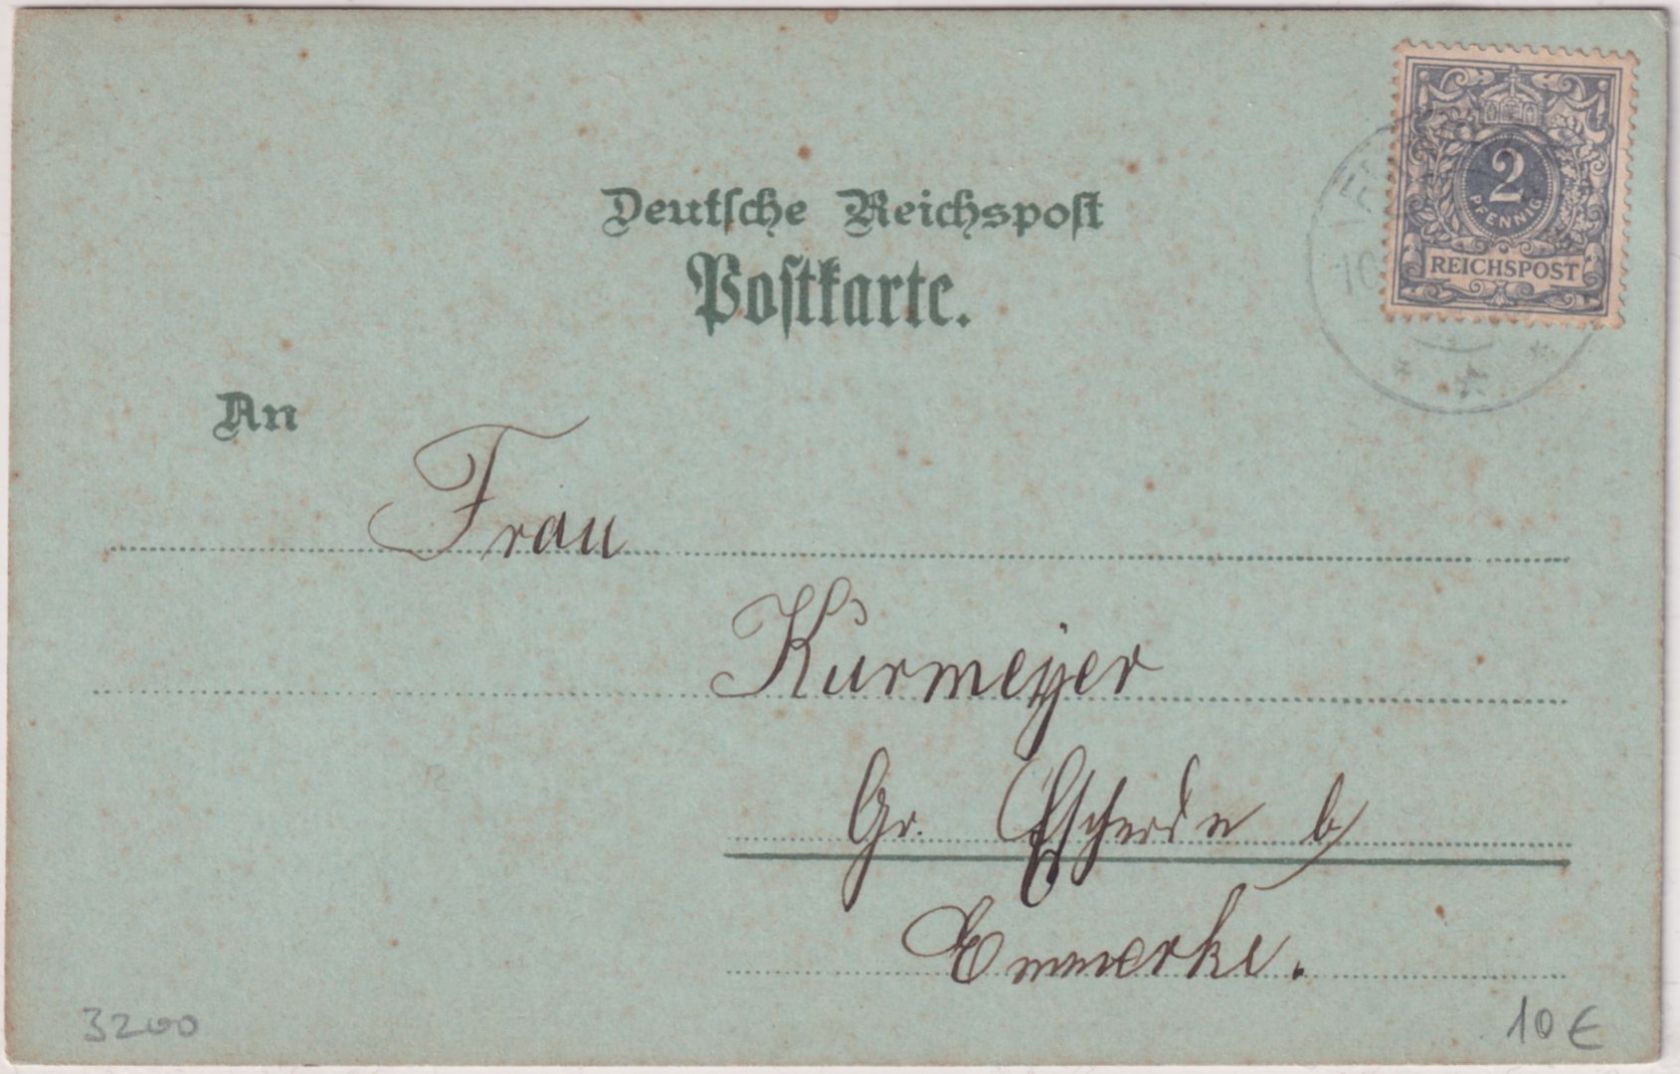 2
PFENNIG
REICHSPOST
Deutsche Reichspost
Postkarte.
10
An
Frau
Kurmeyer
Gr. Escherde b/
Emmerke.
3200
10 €